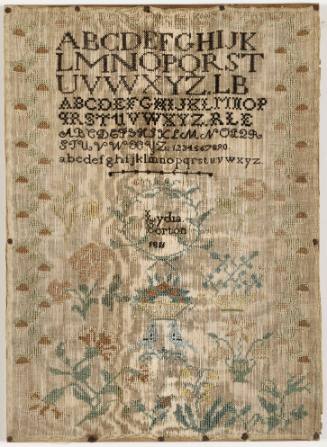 ABCDEFGHIJK
LMNOPQRST
UVWXYZ.LB
ABCDEFGHIJKLMNOP
QRSTUVWXYZ.RLE
ABCDEFGHIKLMNOPQR
STUVWXYZ. 1234567890.
abcdefghijklmnopqrstuvwxyz.
Lydia
Borton